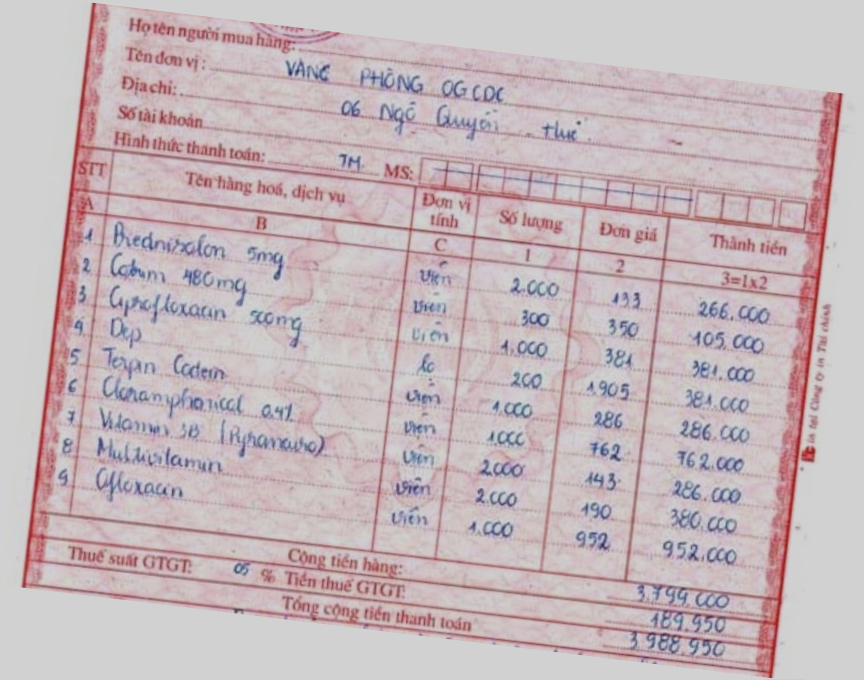 Họ tên người mua hàng:
Tên đơn vị: VĂNG PHÒNG OGCDC
Địa chỉ: 06 Ngô Quyền Huế
Số tài khoản
Hình thức thanh toán: TM MS:
STT Tên hàng hoá, dịch vụ Đơn vị tính Số lượng Đơn giá Thành tiền
A B C 1 2 3=1x2
1 Prednisolon 5mg viên 2.000 133 266.000
2 480mg viên 300 350 105.000
3 500mg viên 1.000 381 381.000
4 Dep lọ 200 1.905 381.000
5 Terpin Codein viên 1.000 286 286.000
6 0,4% viên 1000 762 762.000
7 Vitamin 3B viên 2000 143 286.000
8 Multivitamin viên 2.000 190 380.000
9 Ofloxacin viên 1.000 952 952.000
Cộng tiền hàng: 3.799.000
Thuế suất GTGT: 05 % Tiền thuế GTGT: 189.950
Tổng cộng tiền thanh toán 3.988.950
in tại Công ty in Tài chính